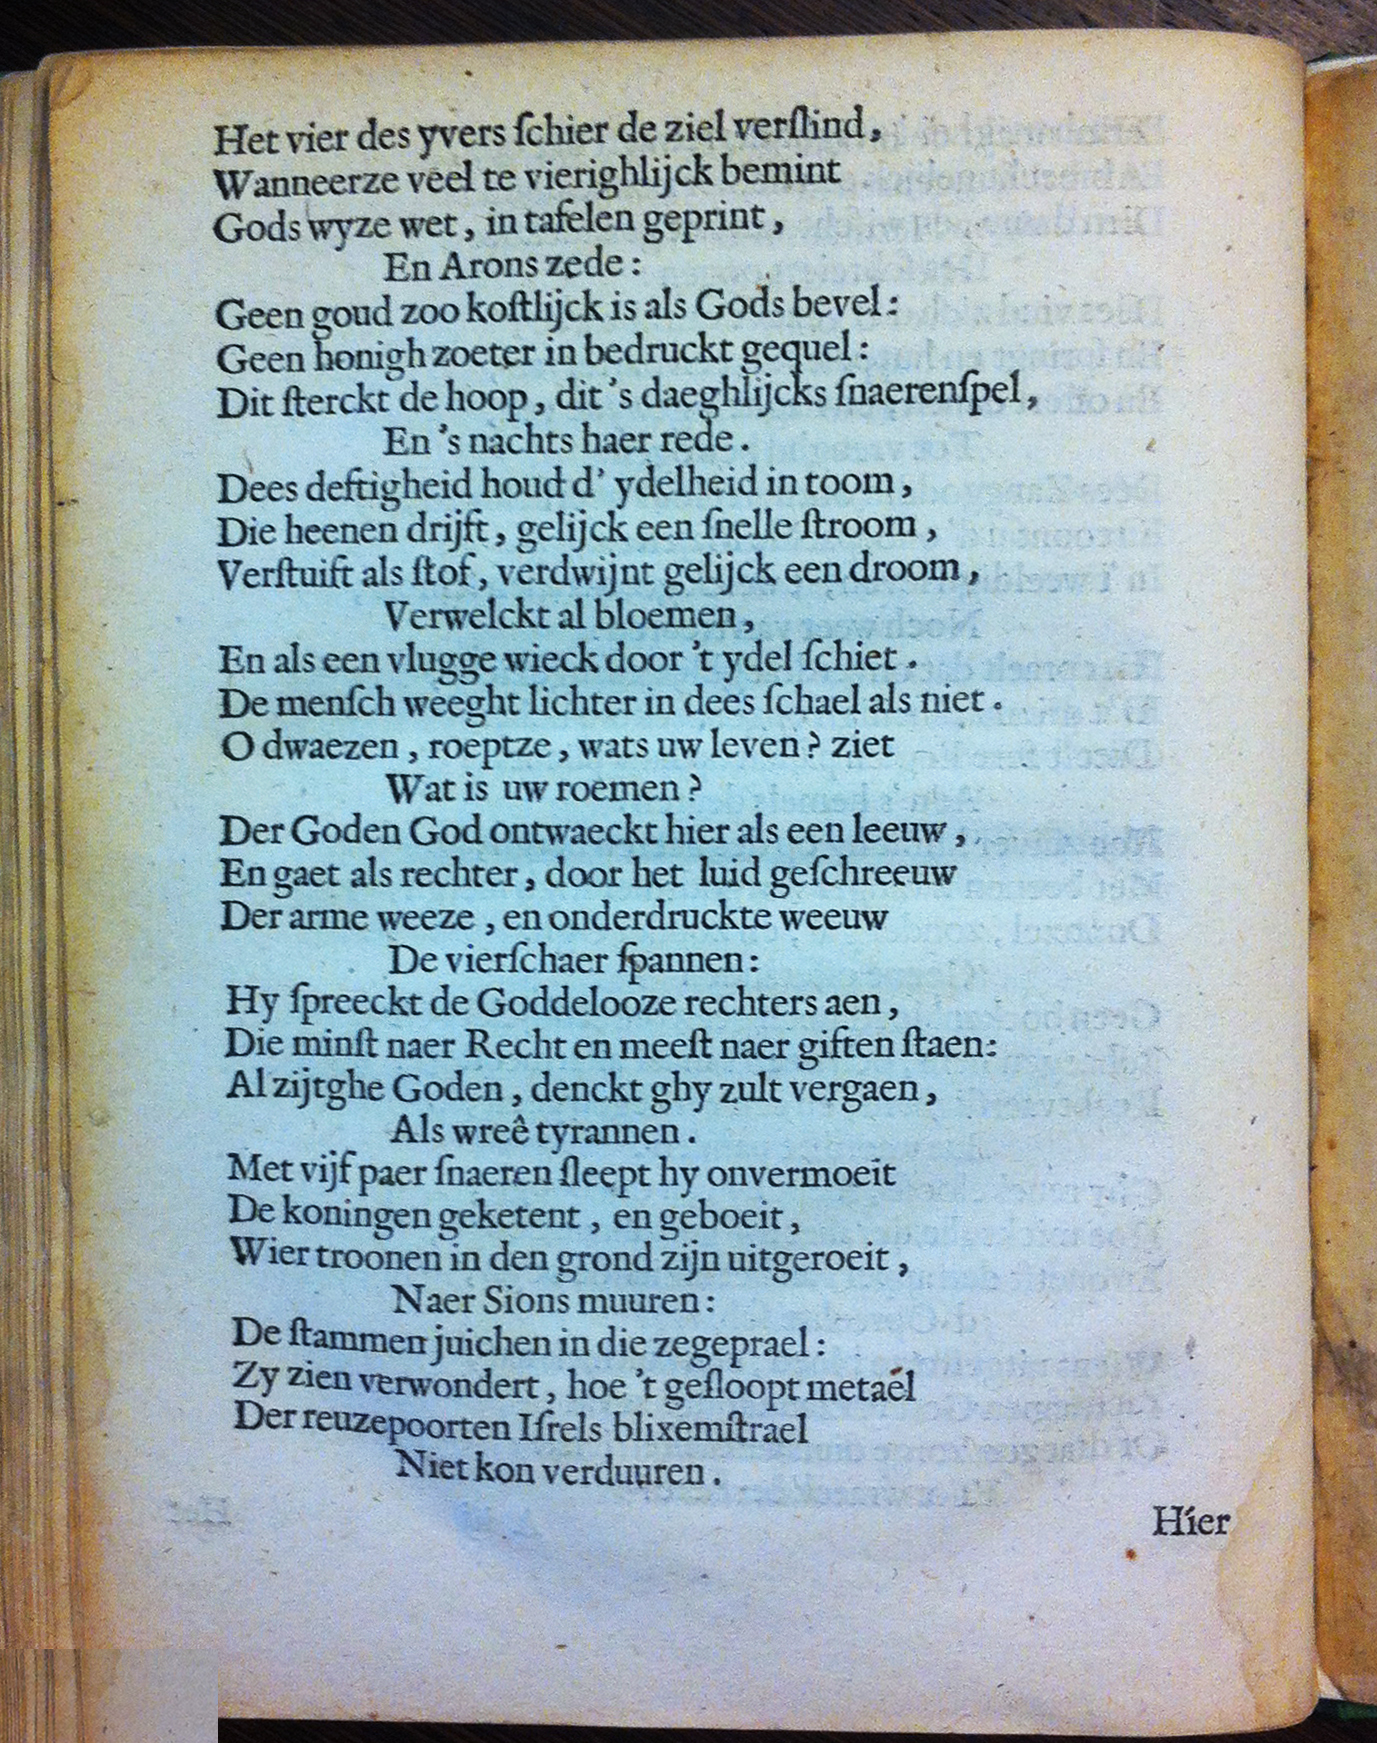 Het vier des yvers ſchier de ziel verſlind,
Wanneerze veel te vierighlijck bemint
Gods wyze wet, in tafelen geprint,
En Arons zede:
Geen goud zoo koſtlijck is als Gods bevel:
Geen honigh zoeter in bedruckt gequel:
Dit ſterckt de hoop, dit 's daeghlijcks ſnaerenſpel,
En 's nachts haer rede.
Dees deftigheid houd d' ydelheid in toom,
Die heenen drijft, gelijck een ſnelle ſtroom,
Verſtuift als ſtof, verdwijnt gelijck een droom,
Verwelckt al bloemen,
En als een vlugge wieck door 't ydel ſchiet.
De menſch weeght lichter in dees ſchael als niet.
O dwaezen, roeptze, wats uw leven? ziet
Wat is uw roemen?
Der Goden God ontwaeckt hier als een leeuw,
En gaet als rechter, door het luid geſchreeuw
Der arme weeze, en onderdruckte weeuw
De vierſchaer ſpannen:
Hy ſpreeckt de Goddelooze rechters aen,
Die minſt naer Recht en meeſt naer giften ſtaen:
Al zijtghe Goden, denckt ghy zult vergaen,
Als wreê tyrannen.
Met vijf paer ſnaeren ſleept hy onvermoeit
De koningen geketent, en geboeit,
Wier troonen in den grond zijn uitgeroeit,
Naer Sions muuren:
De ſtammen juichen in die zegeprael:
Zy zien verwondert, hoe 't geſloopt metaél
Der reuzepoorten Iſrels blixemſtrael
Niet kon verduuren.
Hier